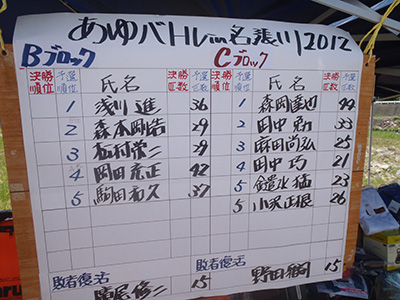 あゆバトルin名張川2012
Bブロック
Cブロック
決勝順位 予選順位 氏名 決勝匹数 予選匹数
決勝順位 予選順位 氏名 決勝匹数 予選匹数
1 浅川 進 36
2 森本剛浩 29
3 松村栄二 29
4 岡田宏正 42
5 駒田和久 37
1 森岡達也 44
2 田中勉 33
3 麻田尚弘 25
4 田中巧 21
5 23
5 小沢正根 26
敗者復活
尾修二 15
敗者復活
野田 15